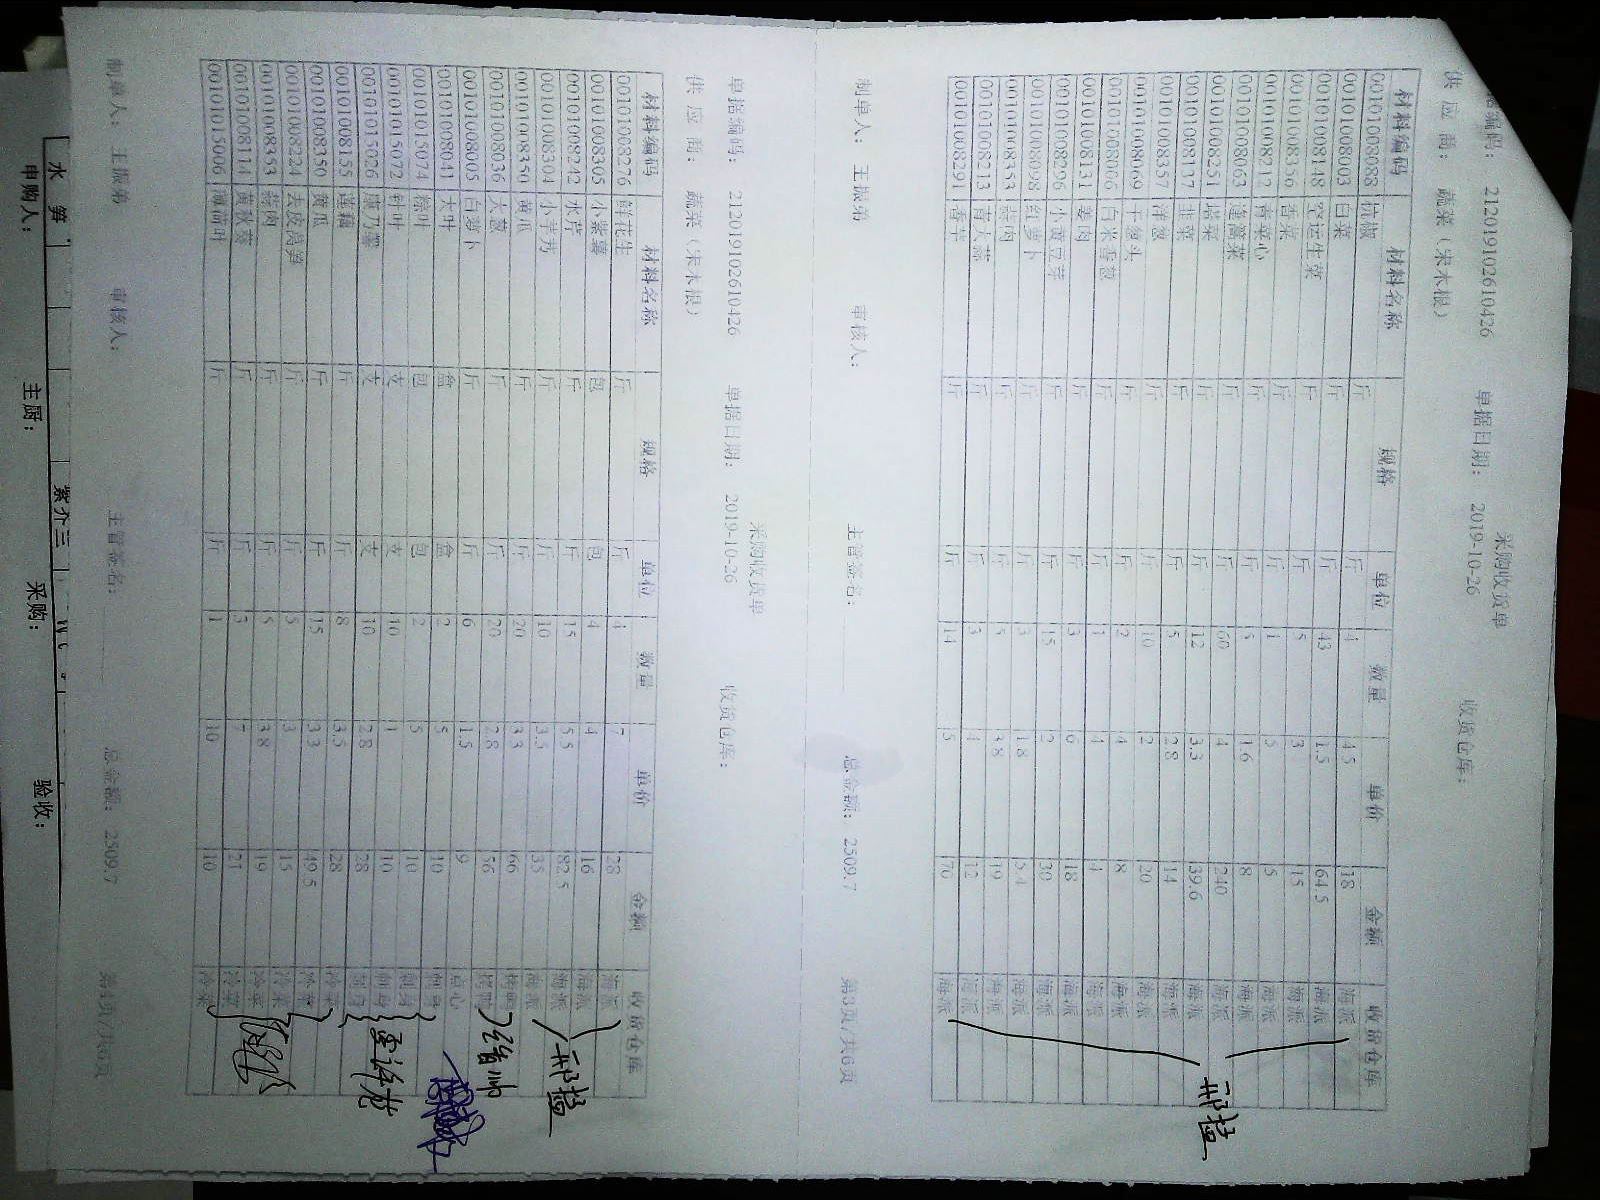 采购收货单
单据编码: 212019102610426 单据日期: 2019-10-26 收货仓库:
供 应 商: 蔬菜(宋木根)
材料编码 材料名称 规格 单位 数量 单价 金额 收货仓库
00101008088 杭椒 斤 斤 4 4.5 18 海派
00101008003 白菜 斤 斤 43 1.5 64.5 海派
00101008148 空运生菜 斤 斤 5 3 15 海派
00101008356 香菜 斤 斤 1 5 5 海派
00101008212 青菜心 斤 斤 5 1.6 8 海派
00101008063 蓬蒿菜 斤 斤 60 4 240 海派
00101008251 塔菜 斤 斤 12 3.3 39.6 海派
00101008137 韭菜 斤 斤 5 2.8 14 海派
00101008357 洋葱 斤 斤 10 2 20 海派
00101008069 干葱头 斤 斤 2 4 8 海派
00101008006 白米香葱 斤 斤 1 4 4 海派
00101008131 姜肉 斤 斤 3 6 18 海派
00101008296 小黄豆芽 斤 斤 15 2 30 海派
00101008098 红萝卜 斤 斤 3 1.8 5.4 海派
00101008353 蒜肉 斤 斤 5 3.8 19 海派
00101008213 青大蒜 斤 斤 3 4 12 海派
00101008291 香芹 斤 斤 14 5 70 海派
制单人: 王振弟 审核人: 主管签名: 总金额: 2509.7 第3页/共6页
采购收货单
单据编码: 212019102610426 单据日期: 2019-10-26 收货仓库:
供 应 商: 蔬菜(宋木根)
材料编码 材料名称 规格 单位 数量 单价 金额 收货仓库
00101008276 鲜花生 斤 斤 4 7 28 海派
00101008305 小紫薯 包 包 4 4 16 海派
00101008242 水芹 斤 斤 15 5.5 82.5 海派
00101008304 小芋艿 斤 斤 10 3.5 35 海派
00101008350 黄瓜 斤 斤 20 3.3 66
00101008036 大葱 斤 斤 20 2.8 56
00101008005 白萝卜 斤 斤 6 1.5 9 点心
00101008041 大叶 盒 盒 2 5 10 刺身
00101015074 粽叶 包 包 2 5 10 刺身
00101015072 针叶 支 支 10 1 10 刺身
00101015026 康乃馨 支 支 10 2.8 28 刺身
00101008155 莲藕 斤 斤 8 3.5 28 冷菜
00101008350 黄瓜 斤 斤 15 3.3 49.5 冷菜
00101008224 去皮莴笋 斤 斤 5 3 15 冷菜
00101008353 蒜肉 斤 斤 5 3.8 19 冷菜
00101008114 黄秋葵 斤 斤 3 7 21 冷菜
00101015006 薄荷叶 斤 斤 1 10 10 冷菜
制单人: 王振弟 审核人: 主管签名: 总金额: 2509.7 第4页/共6页
水 笋
申购人: 主厨: 采购: 验收: